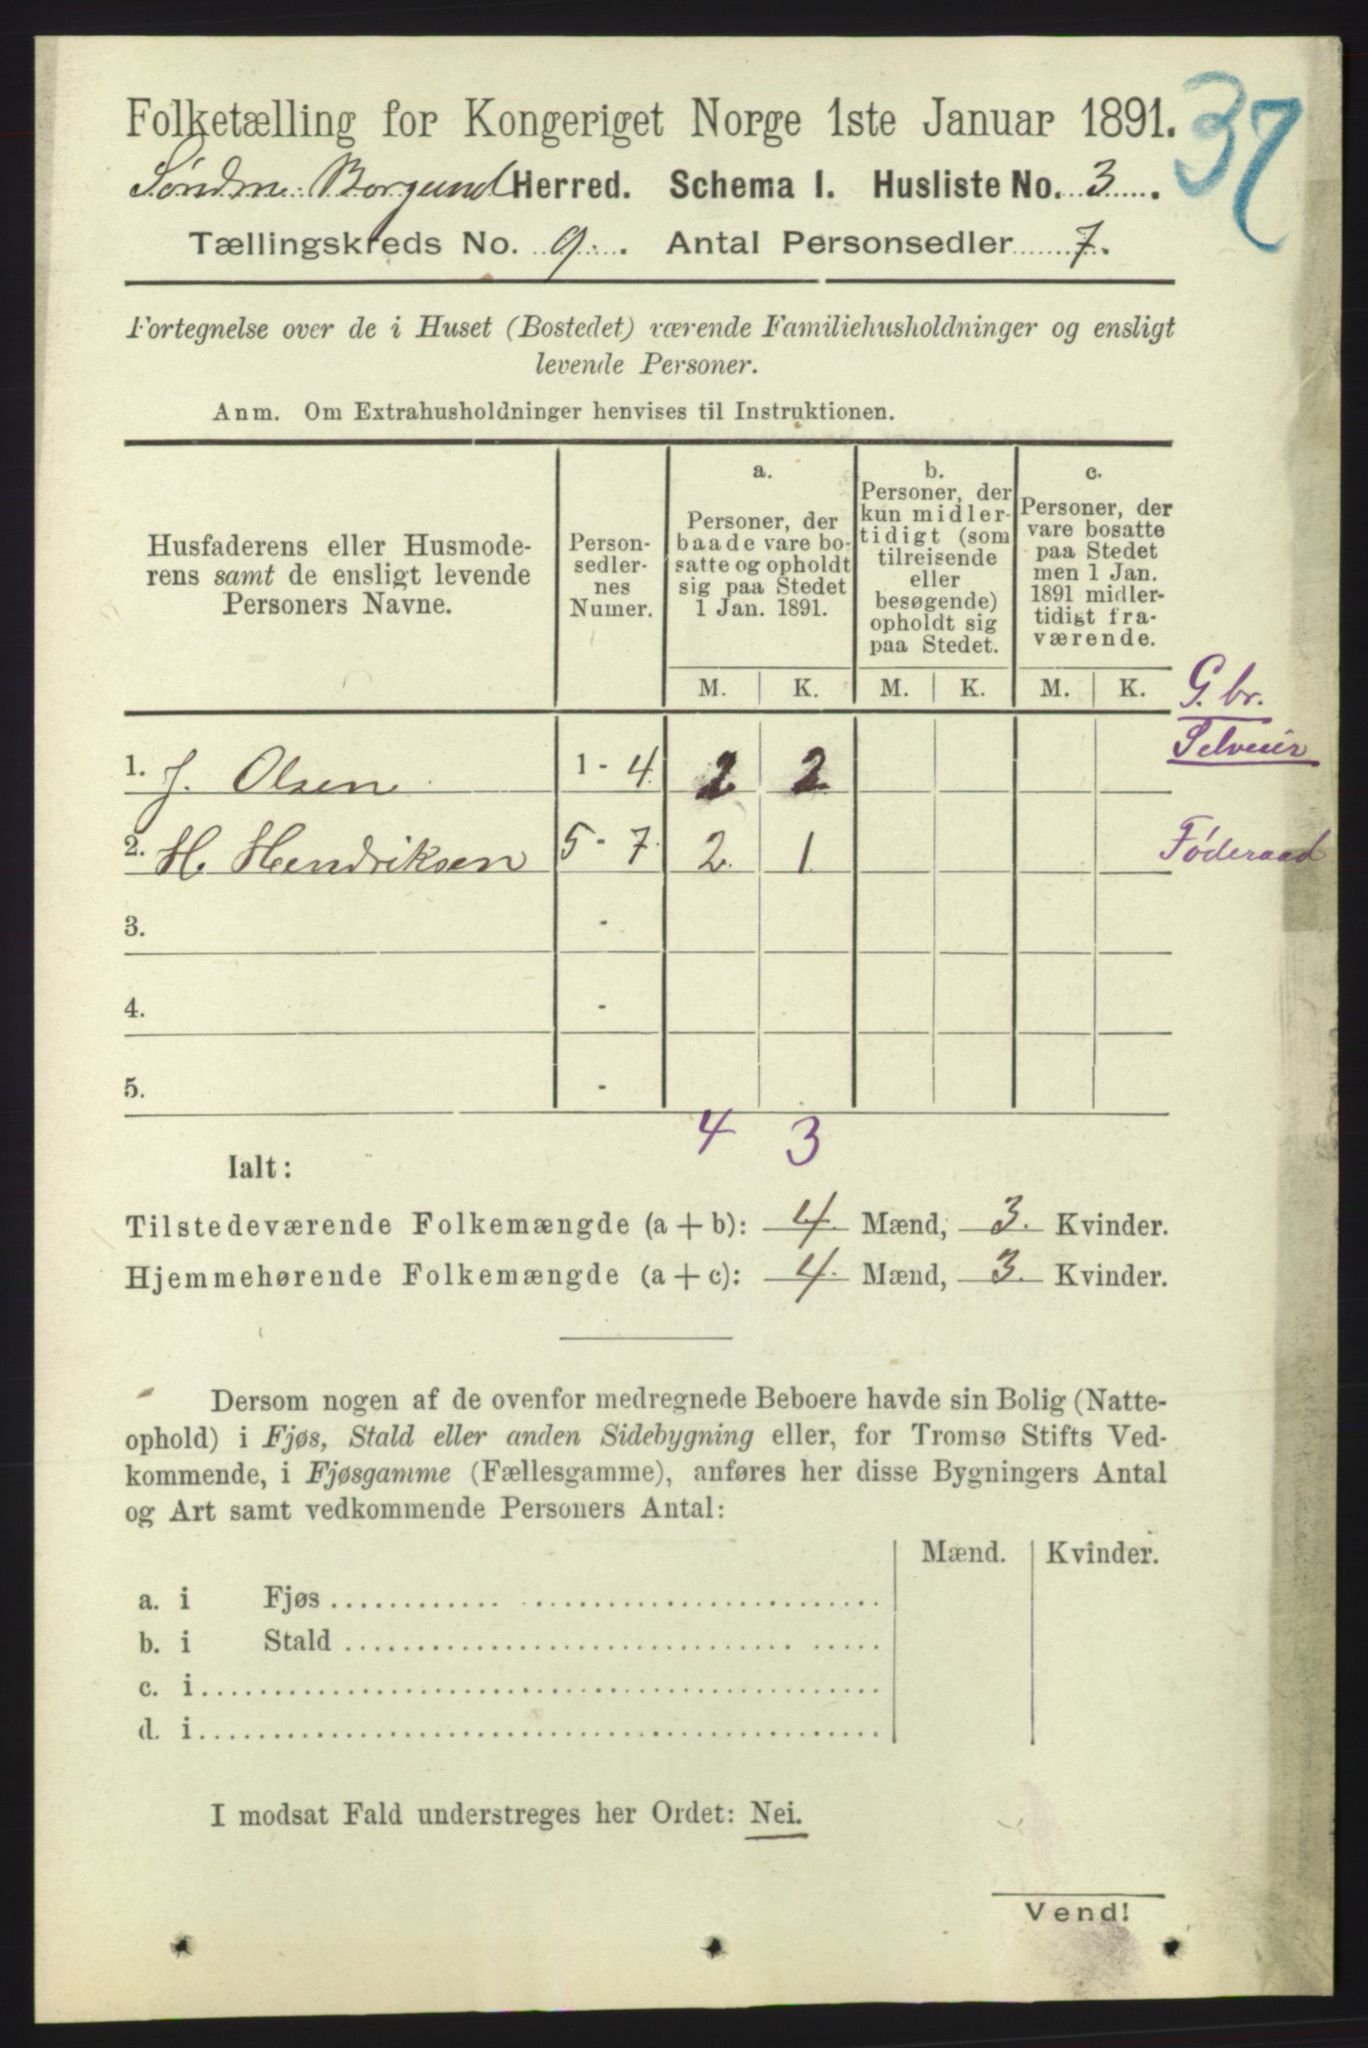 Folketælling for Kongeriget Norge 1ste Januar 1891.
37
Søndm. Borgund Herred. Schema I. Husliste No. 3.
Tællingskreds No. 9. Antal Personsedler 7.
Fortegnelse over de i Huset (Bostedet) værende Familiehusholdninger og ensligt
levende Personer.
Anm. Om Extrahusholdninger henvises til Instruktionen.
Husfaderens eller Husmode-
rens samt de ensligt levende
Personers Navne.
Person-
sedler-
nes
Numer.
a.
Personer, der
baade vare bo-
satte og opholdt
sig paa Stedet
1 Jan. 1891.
b.
Personer, der
kun midler-
tidigt (som
tilreisende
eller
besøgende)
opholdt sig
paa Stedet.
c.
Personer, der
vare bosatte
paa Stedet
men 1 Jan.
1891 midler-
tidigt fra-
værende.
M. K. M. K. M. K.
G. br.
Selveier
1. J. Olsen 1 - 4. 2 2
2. H. Hendriksen 5 - 7. 2. 1 Føderaad
3. -
4. -
5. -
4 3
Ialt:
Tilstedeværende Folkemængde (a + b): 4. Mænd, 3. Kvinder.
Hjemmehørende Folkemængde (a + c): 4. Mænd, 3. Kvinder.
Dersom nogen af de ovenfor medregnede Beboere havde sin Bolig (Natte-
ophold) i Fjøs, Stald eller anden Sidebygning eller, for Tromsø Stifts Ved-
kommende, i Fjøsgamme (Fællesgamme), anføres her disse Bygningers Antal
og Art samt vedkommende Personers Antal:
Mænd. Kvinder.
a. i Fjøs
b. i Stald
c. i
d. i
I modsat Fald understreges her Ordet: Nei.
Vend!